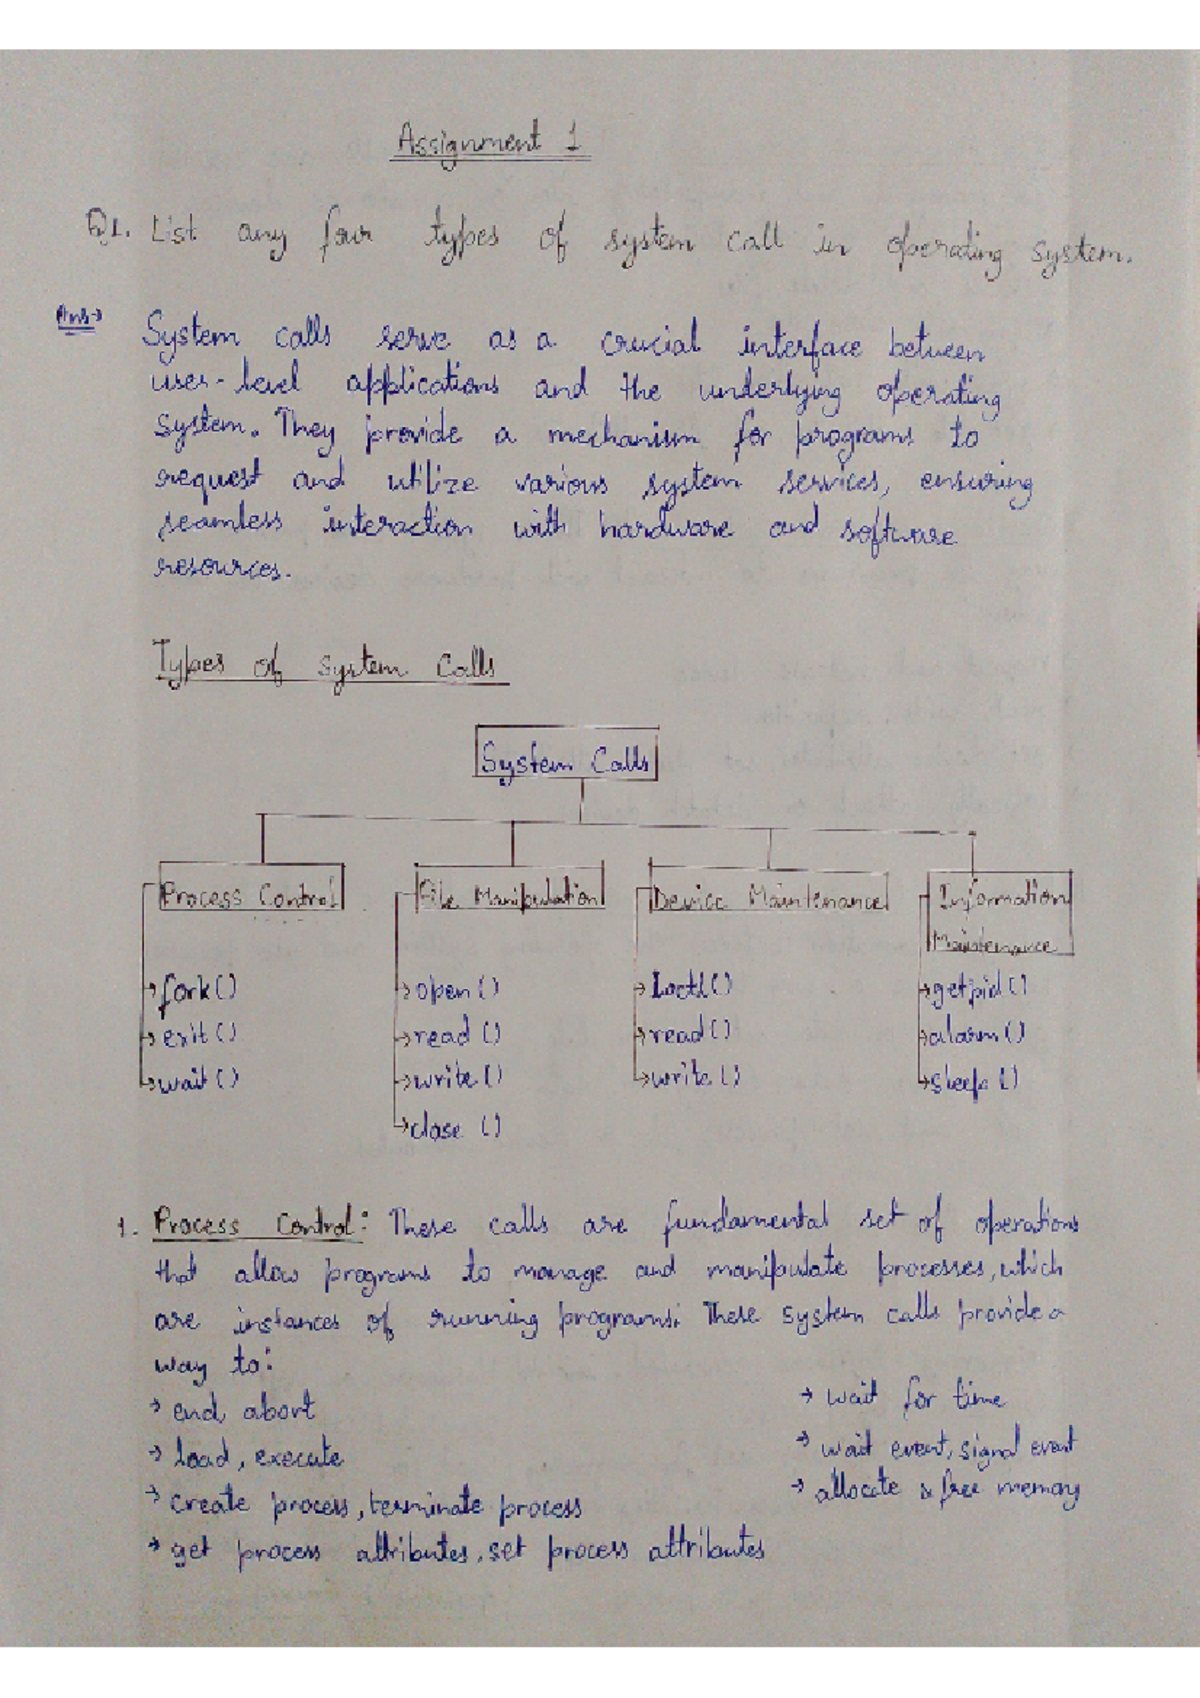 Assignment 1
Q1. List any four types of system call in operating system.
Ans→ System calls serve as a crucial interface between
user-level applications and the underlying operating
system. They provide a mechanism for programs to
request and utilize various system services, ensuring
seamless interaction with hardware and software
resources.
Types of System Calls
System Calls
Process Control File Manipulation Device Maintenance Information
Maintenance
→fork() →open() →Ioctl() →getpid()
→exit() →read() →read() →alarm()
→wait() →write() →write() →sleep()
→close ()
1. Process Control: These calls are fundamental set of operations
that allow programs to manage and manipulate processes, which
are instances of running programs. These system calls provide a
way to:
→ end, abort → wait for time
→ load, execute → wait event, signal event
→ create process, terminate process → allocate & free memory
→ get process attributes, set process attributes